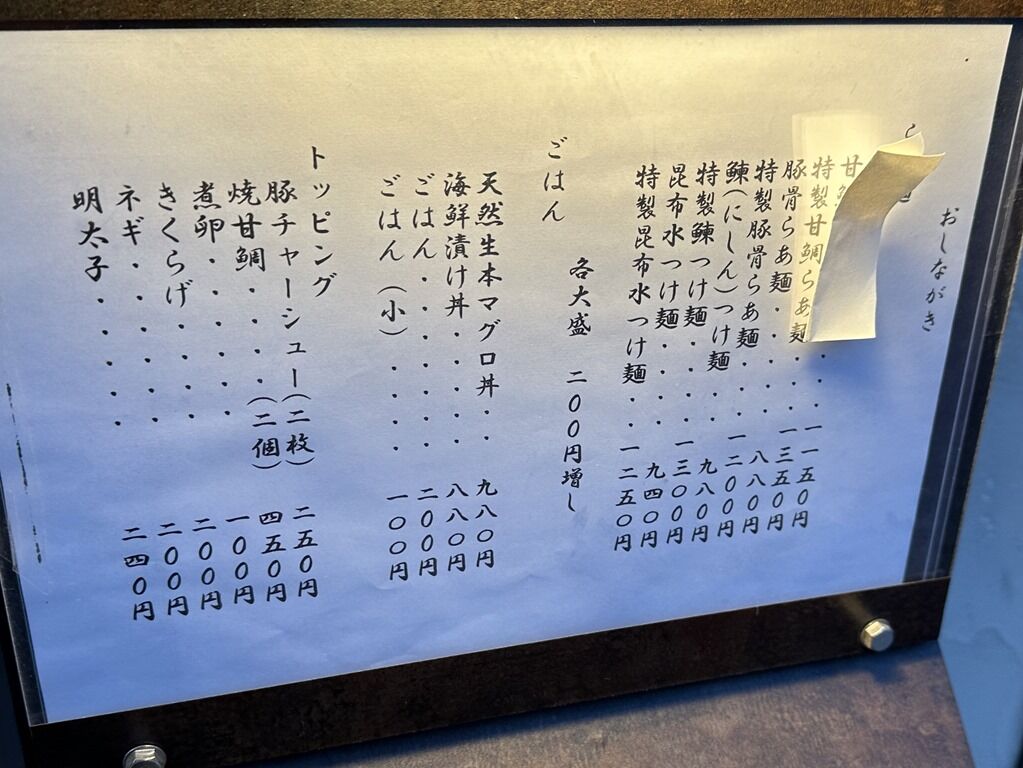 おしながき
甘
特製甘鯛らあ麺・・・一三五〇円
豚骨らあ麺・・・・八八〇円
特製豚骨らあ麺・・・一二〇〇円
鰊(にしん)つけ麺・・九八〇円
特製鰊つけ麺・・・・一三〇〇円
昆布水つけ麺・・・・九四〇円
特製昆布水つけ麺・・一二五〇円
一一五〇円
各大盛 二〇〇円増し
ごはん
天然生本マグロ丼・・九八〇円
海鮮漬け丼・・・・・八八〇円
ごはん・・・・・・・二〇〇円
ごはん(小)・・・・一〇〇円
トッピング
豚チャーシュー(二枚) 二五〇円
焼甘鯛・・・・(二個) 四五〇円
煮卵・・・・・・一〇〇円
きくらげ・・・・二〇〇円
ネギ・・・・・・二〇〇円
明太子・・・・・二四〇円